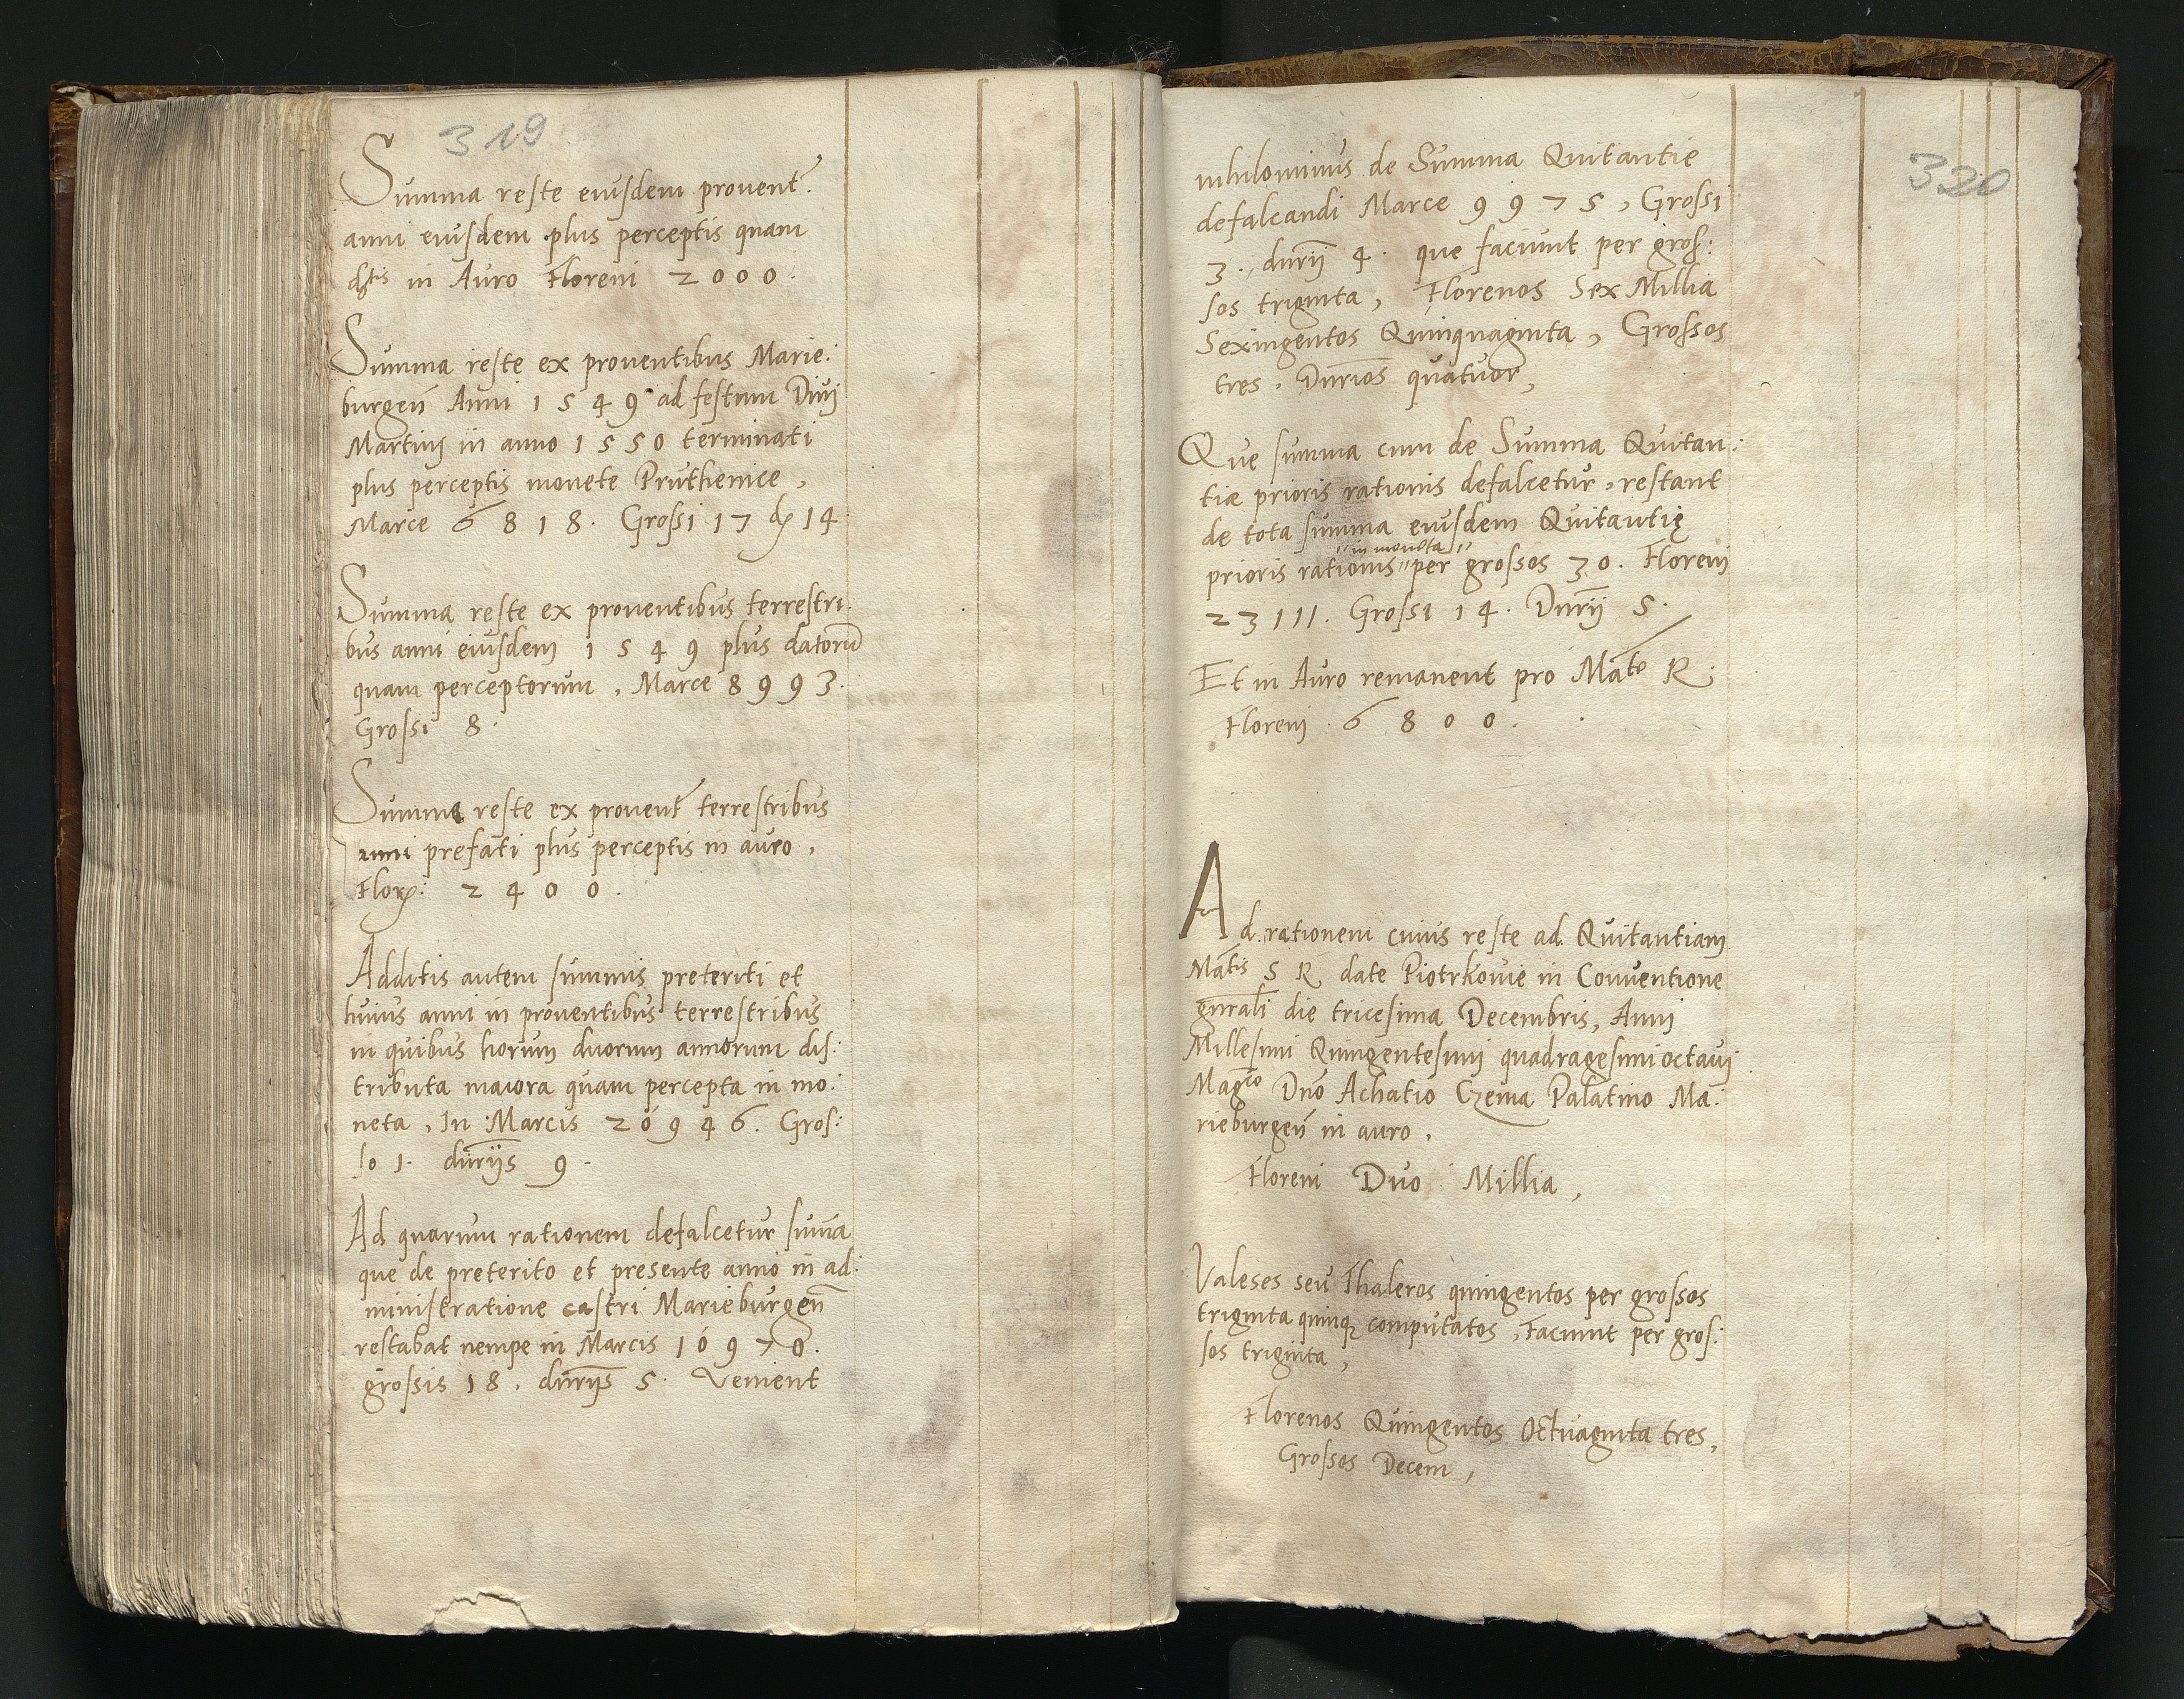 319
Summa reste eiusdem provent.
anni eiusdem plus perceptis quam
in Auro Floreni 2000.
Summa reste ex proventibus Marie:
burgeñ Anni 1549 ad festum Divi
Martini in anno 1550 terminati
plus perceptis monete Pruthenice,
Marce 6818. Grossi 17 14
Summa reste ex proventibus terrestri:
bus anni eiusdem 1549 plus datorũ
quam perceptorum, Marce 8993.
Grossi 8.
Summa reste ex provent terrestribus
anni prefati plus perceptis in auro,
Flor: 2400.
Additis autem summis preteriti et
huius anni in proventibus terrestribus
in quibus horum duorum annorum dis:
tributa maiora quam percepta in mo:
neta, In Marcis 20946. Gros:
so 1. duriis 9.
Ad quarum rationem defalcetur sum̃a
que de preterito et presente anno in ad:
ministratione castri Marieburgeñ
restabat nempe in Marcis 10970.
grossis 18. duriis 5. Venient
320
nihilominus de Summa Quitantie
defalcandi Marce 9975, Grossi
3. durii 4. que faciunt per gros:
sos triginta, Florenos Sex Millia
Sexingentos Quinquaginta, Grossos
tres. Durios quatuor,
Que summa cum de Summa Quitan:
tiæ prioris rationis defalcetur, restant
de tota summa eiusdem Quitantię
"in moneta"
prioris rationis " per grossos 30. Floreni
23111. Grossi 14. Durii 5.
Et in Auro remanent pro Mate R.
Floreni 6800.
Ad rationem cuius reste ad Quitantiam
Matis S R date Piotrkovie in Conventione
gnrali die tricesima Decembris, Anni
Millesimi Quingentesimi quadragesimi octavi
Magco Dno Achatio Czema Palatino Ma:
rieburgeñ in auro,
Floreni Duo Millia,
Valeses seu Thaleros quingentos per grossos
triginta quinqз computatos, Faciunt per gros:
sos triginta,
Florenos Quingentos Octuaginta tres,
Grossos Decem,